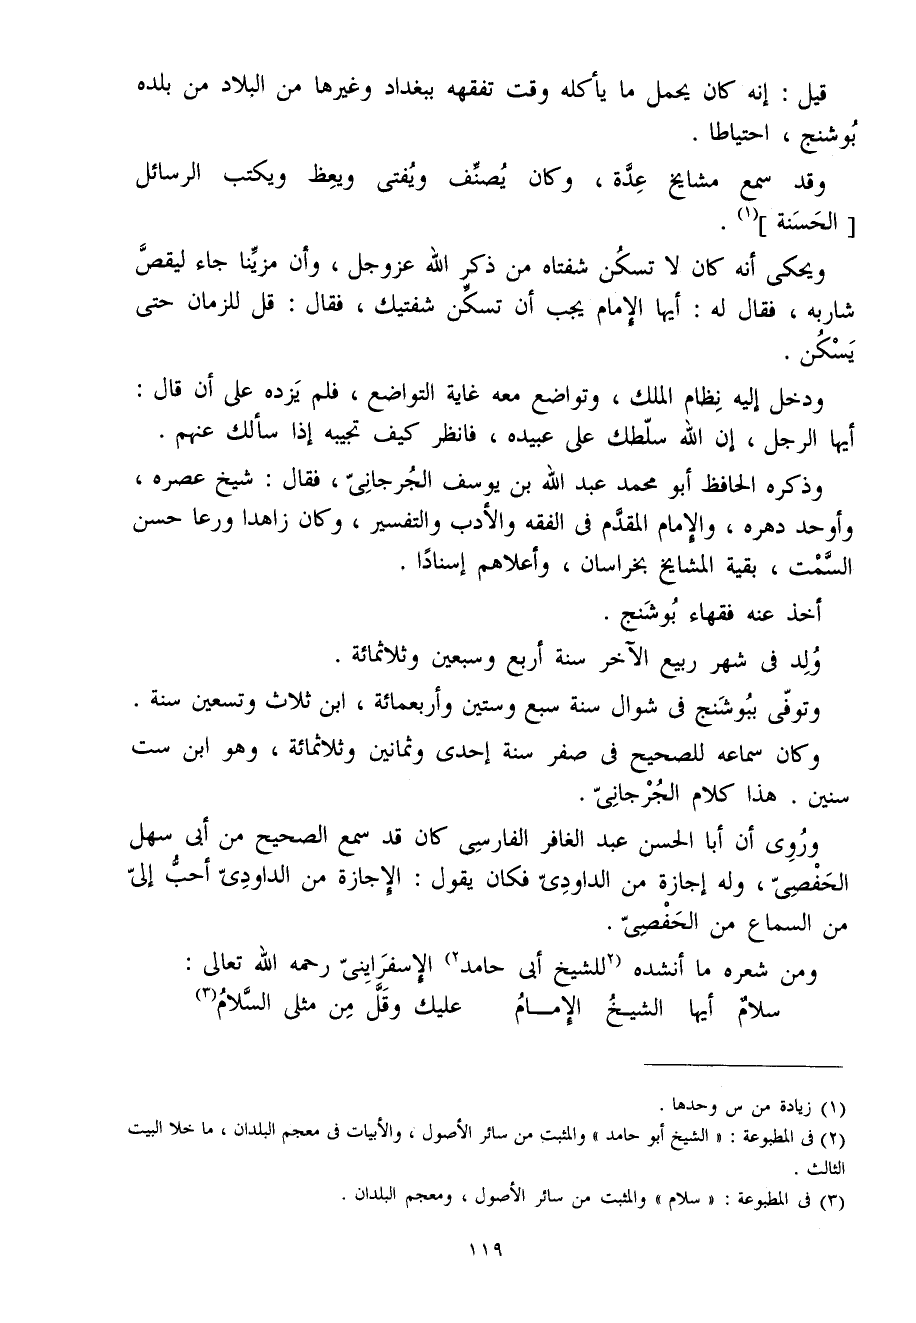 قيل : إنه كان يحمل ما يأكله وقت تفقهه ببغداد وغيرها من البلاد من بلده
بُوشنج ، احتياطا .
وقد سمع مشايخ عِدَّة ، وكان يُصنِّف ويُفتى ويعِظ ويكتب الرسائل
[ الحَسَنة ](١) .
ويحكى أنه كان لا تسكُن شفتاه من ذكر الله عزوجل ، وأن مزيِّنا جاء ليقصَّ
شاربه ، فقال له : أيها الإمام يجب أن تسكِّن شفتيك ، فقال : قل للزمان حتى
يَسْكُن .
ودخل إليه نِظام الملك ، وتواضع معه غاية التواضع ، فلم يَزده على أن قال :
أيها الرجل ، إن الله سلّطك على عبيده ، فانظر كيف تجيبه إذا سألك عنهم .
وذكره الحافظ أبو محمد عبد الله بن يوسف الجُرجانِىّ ، فقال : شيخ عصره ،
وأوحد دهره ، والإمام المقدَّم فى الفقه والأدب والتفسير ، وكان زاهدا ورعا حسن
السَّمْت ، بقية المشايخ بخراسان ، وأعلاهم إسنادًا .
أخذ عنه فقهاء بُوشَنج .
وُلِد فى شهر ربيع الآخر سنة أربع وسبعين وثلاثمائة .
وتوفّى ببُوشَنج فى شوال سنة سبع وستين وأربعمائة ، ابن ثلاث وتسعين سنة .
وكان سماعه للصحيح فى صفر سنة إحدى وثمانين وثلاثمائة ، وهو ابن ست
سنين . هذا كلام الجُرْجانِىّ .
ورُوِى أن أبا الحسن عبد الغافر الفارسِى كان قد سمع الصحيح من أبى سهل
الحَفْصِىّ ، وله إجازة من الداودِىّ فكان يقول : الإجازة من الداودِىّ أحبُّ إلىّ
من السماع من الحَفْصِىّ .
ومن شعره ما أنشده (٢للشيخ أبى حامد٢) الإسفرَاينِىّ رحمه الله تعالى :
سلامٌ أيها الشيـخُ الإمــامُ عليك وقَلَّ مِن مثلى السَّلامُ(٣)
(١) زيادة من س وحدها .
(٢) فى المطبوعة : « الشيخ أبو حامد » والمثبت من سائر الأصول ، والأبيات فى معجم البلدان ، ما خلا البيت
الثالث .
(٣) فى المطبوعة : « سلام » والمثبت من سائر الأصول ، ومعجم البلدان .
١١٩